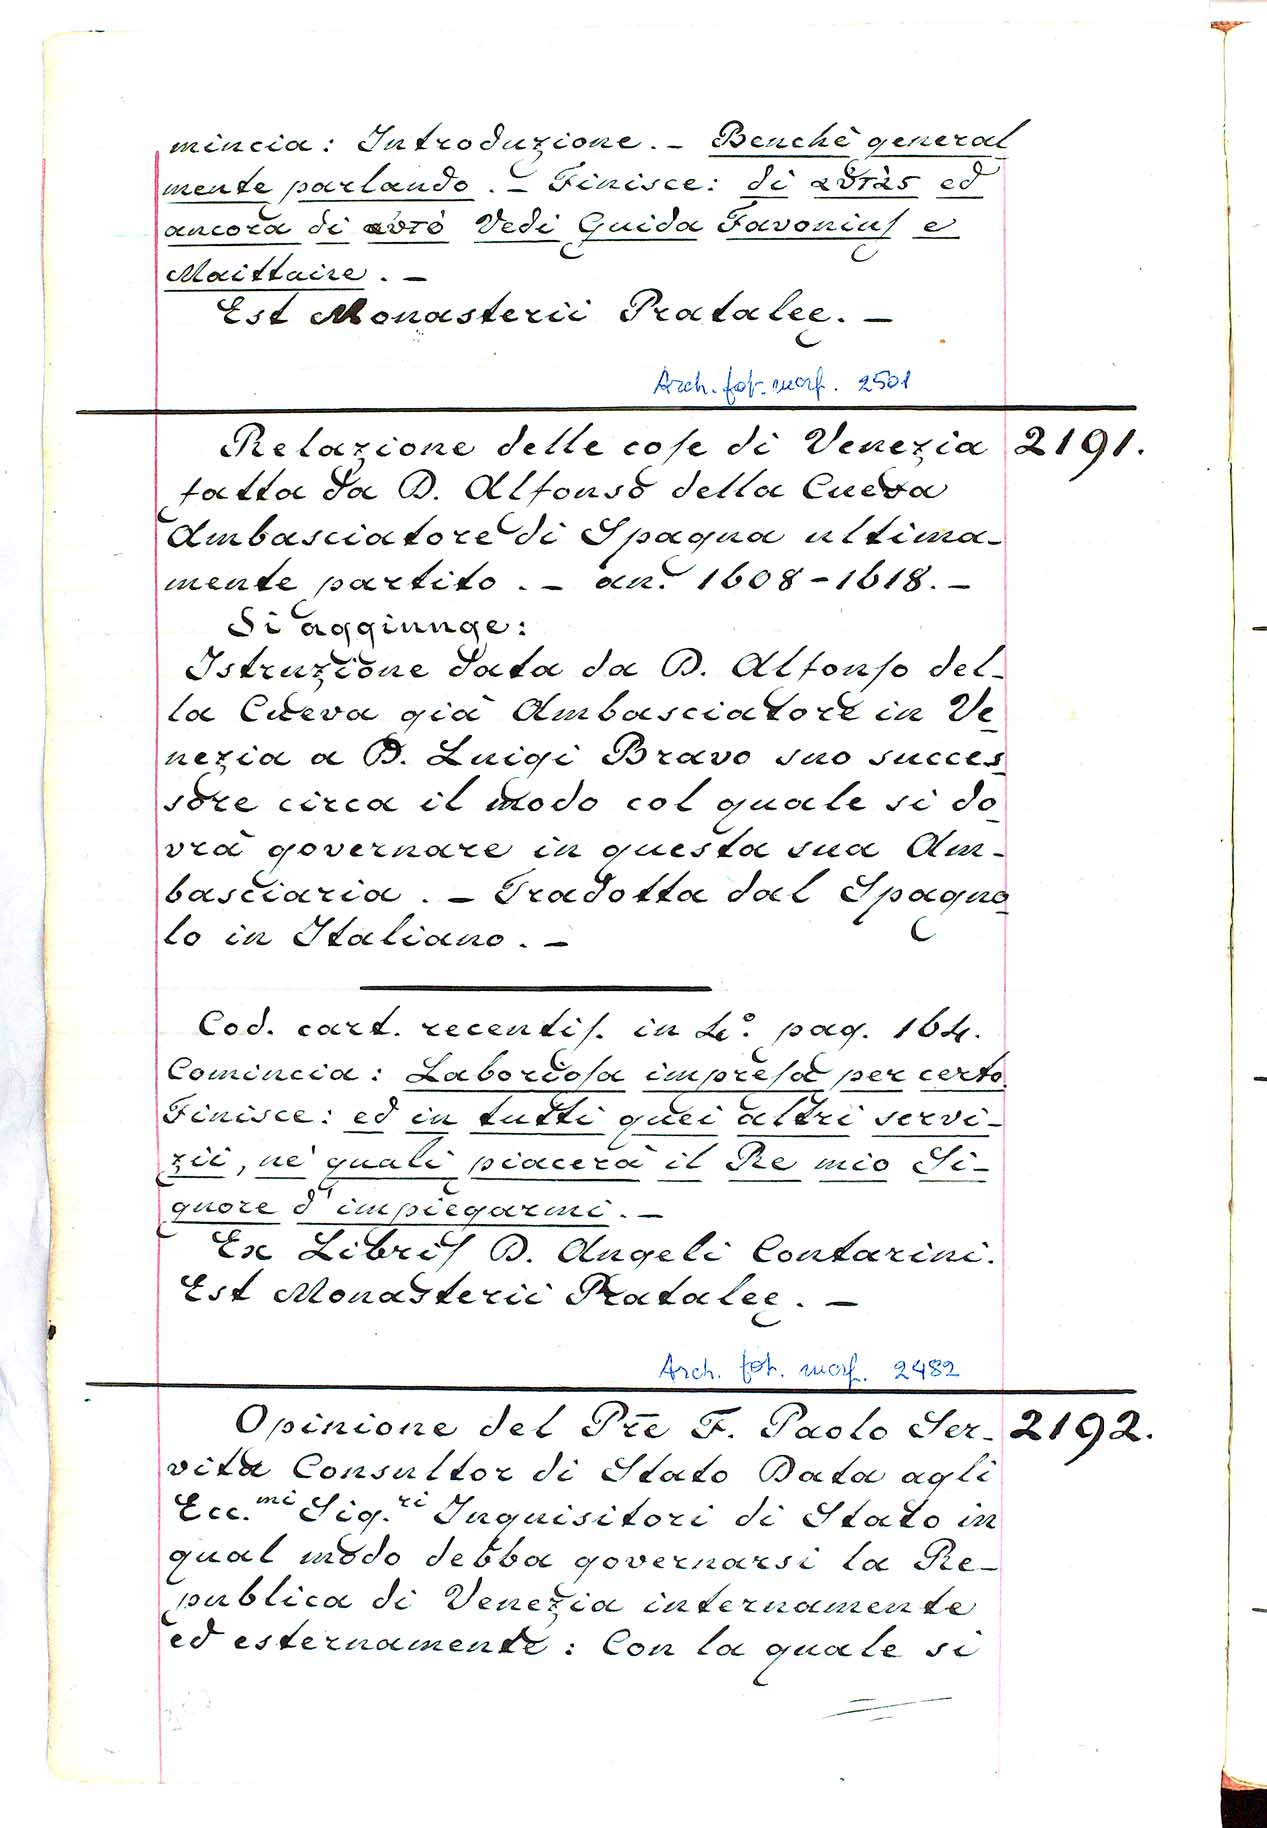 mincia: Introduzione. – Benchè general
mente parlando. – Finisce: di ed
ancora di αὐτὸ Vedi Guida Favoriuſ e
Maittaire. –
Est Monasterii Pratalee. –
Arch. fot. morf. 2501
Relazione delle coſe di Venezia 2191.
fatta da D. Alfonso della Cueva
Ambasciatore di Spagna ultima-
mente partito. – an. 1608-1618. –
Si aggiunge:
Istruzione data da D. Alfonſo del-
la Cueva già Ambasciatore in Ve
nezia a D. Luigi Bravo suo succes
sore circa il modo col quale si do
vrà governare in questa sua Am-
basciaria. – Tradotta dal Spagno
lo in Italiano. –
Cod. cart. recentiſ. in 4.° pag. 164.
Comincia: Laborioſa impreſa per certo
Finisce: ed in tutti quei altri servi-
zii, ne' quali piacerà il Re mio Si-
gnore d'impiegarmi. –
Ex Libriſ D. Angeli Contarini.
Est Monasterii Pratalee. –
Arch. fot. morf. 2482
Opinione del Pr̃e F. Paolo Ser- 2192.
vita Consultor di Stato Data agli
Ecc.mi Sig.ri Inquisitori di Stato in
qual modo debba governarsi la Re-
publica di Venezia internamente
ed esternamente: Con la quale si